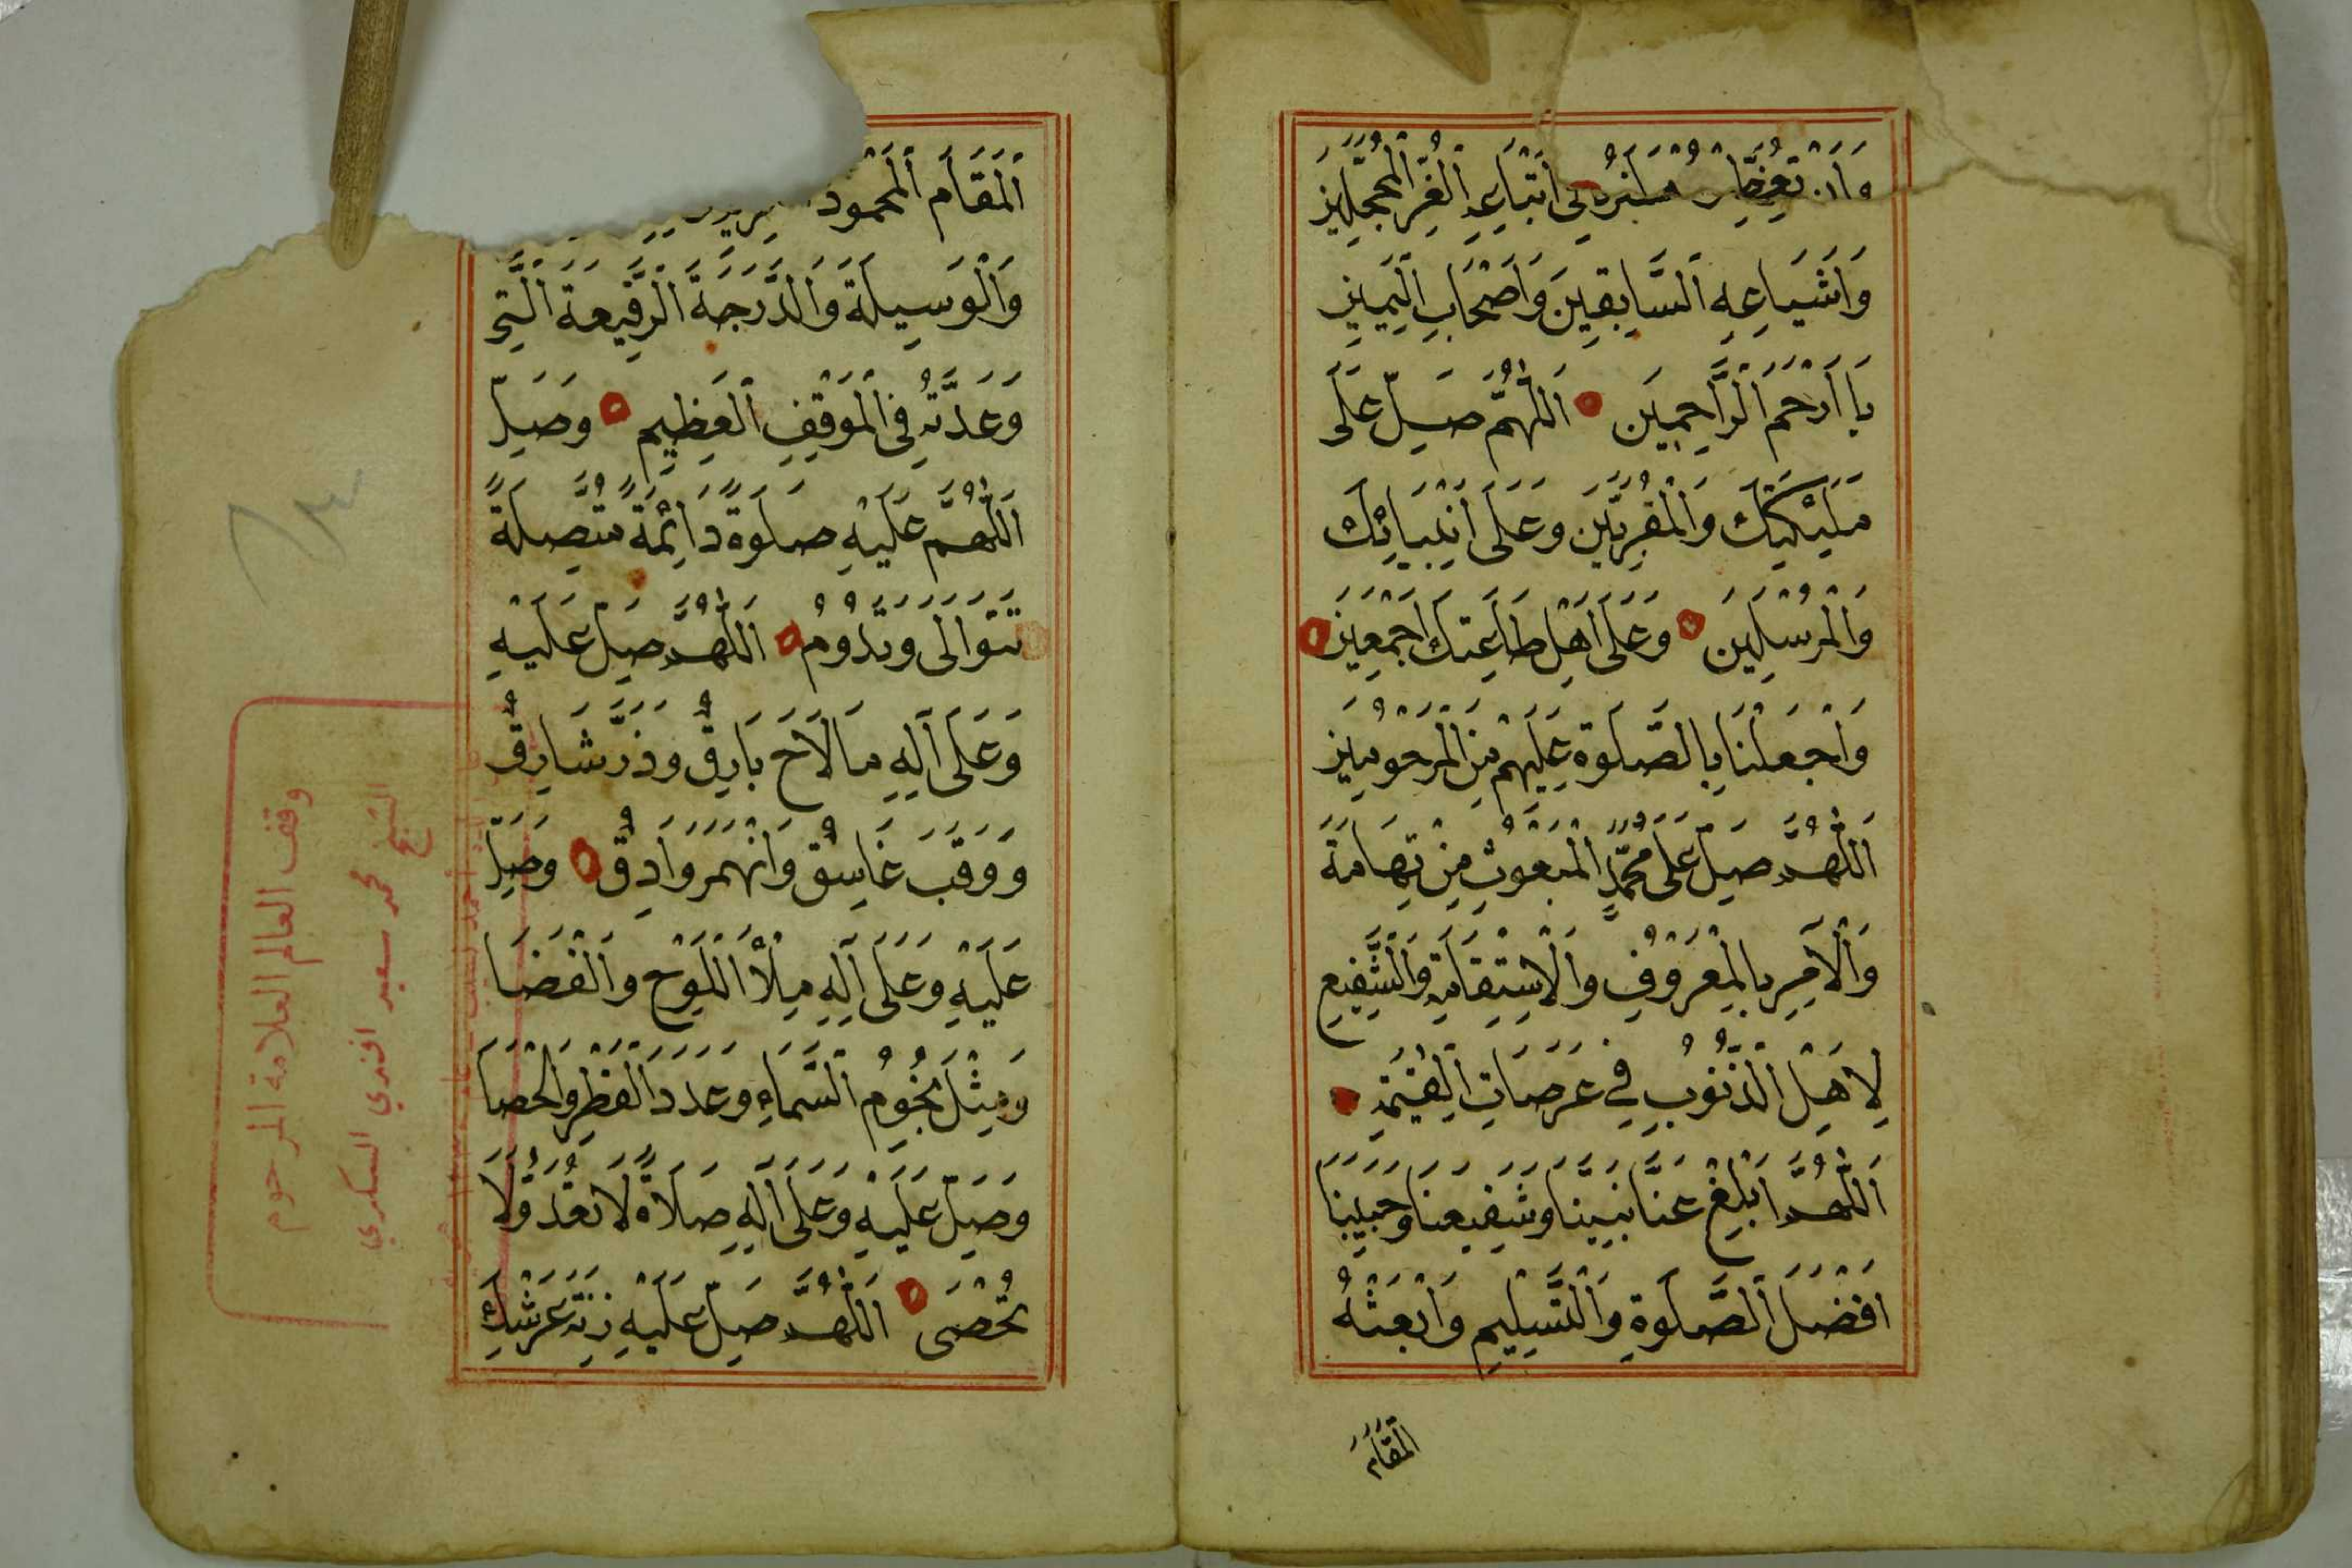 اَتْبَاعِهِ الْغُرِّ الْمُحَجَّلِينَ
وَاَشْيَاعِهِ السَّابِقِينَ وَاَصْحَابِ الْيَمِينِ
يَا اَرْحَمَ الرَّاحِمِينَ اَللّٰهُمَّ صَلِّ عَلَى
مَلٰئِكَتِكَ وَالْمُقَرَّبِينَ وَعَلَى اَنْبِيَائِكَ
وَالْمُرْسَلِينَ وَعَلَى اَهْلِ طَاعَتِكَ اَجْمَعِينَ
وَاجْعَلْنَا بِالصَّلَوةِ عَلَيْهِمْ مِنَ الْمَرْحُومِينَ
اَللّٰهُمَّ صَلِّ عَلَى مُحَمَّدٍ الْمَبْعُوثِ مِنْ تِهَامَةَ
وَالْآمِرِ بِالْمَعْرُوفِ وَالْاِسْتِقَامَةِ وَالشَّفِيعِ
لِاَهْلِ الذُّنُوبِ فِي عَرَصَاتِ الْقِيٰمَةِ
اَللّٰهُمَّ اَبْلِغْ عَنَّا نَبِيَّنَا وَشَفِيعَنَا وَحَبِيبَنَا
اَفْضَلَ الصَّلَوةِ وَالتَّسْلِيمِ وَابْعَثْهُ
الْمَقَامَ
اَلْمَقَامَ الْمَحْمُودَ
وَالْوَسِيلَةَ وَالدَّرَجَةَ الرَّفِيعَةَ الَّتِي
وَعَدْتَهُ فِي الْمَوْقِفِ الْعَظِيمِ وَصَلِّ
اَللّٰهُمَّ عَلَيْهِ صَلَوةً دَائِمَةً مُتَّصِلَةً
تَتَوَالَى وَتَدُومُ اَللّٰهُمَّ صَلِّ عَلَيْهِ
وَعَلَى آلِهِ مَا لَاحَ بَارِقٌ وَذَرَّ شَارِقٌ
وَوَقَبَ غَاسِقٌ وَانْهَمَرَ وَادِقٌ وَصَلِّ
عَلَيْهِ وَعَلَى آلِهِ مِلْأَ اللَّوْحِ وَالْفَضَا
وَمِثْلَ نُجُومِ السَّمَاءِ وَعَدَدَ الْقَطْرِ وَالْحَصَا
وَصَلِّ عَلَيْهِ وَعَلَى آلِهِ صَلَاةً لَا تُعَدُّ وَلَا
تُحْصَى اَللّٰهُمَّ صَلِّ عَلَيْهِ زِنَةَ عَرْشِكَ
وقف العالم العلامة المرحوم
الشيخ محمد سعيد افندي